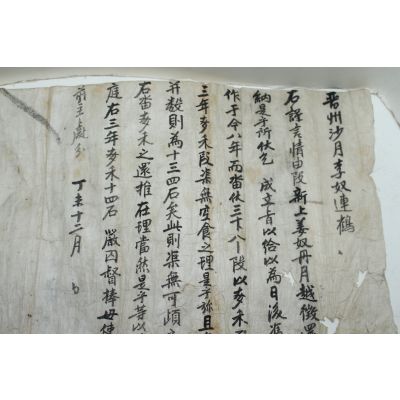 晋州沙月李奴連鶴
右謹言情由段新上姜奴丹月越徵
納是乎所伏乞 成立旨以給以為日後
作于今八年而畓伏三卞八个段以麥禾
三年麥禾段渠無空食之理是乎旀且
并數則為十三四石矣此則渠無可頉
右畓麥禾之還推在理當然是乎等以
庭右三年麥禾十四石 嚴囚督捧毋使
前主處分
丁未十二月 日